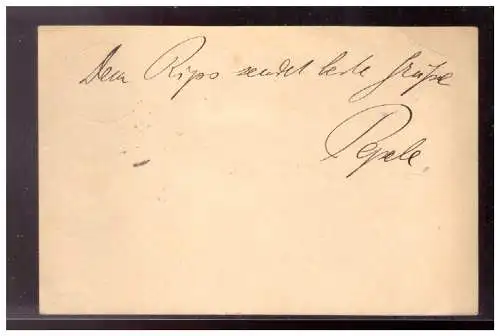 Dem Rips sendet beste Grüße
Pepele.